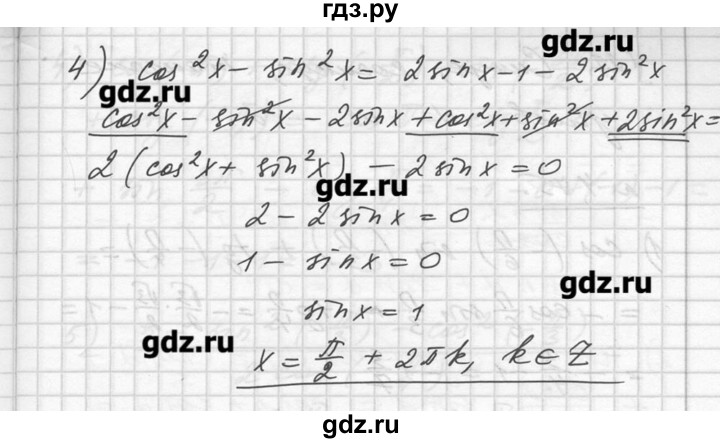 гдз.ру
gdz.ru
4) cos²x - sin²x = 2sinx - 1 - 2sin²x
gdz.ru
cos²x - sin²x - 2sinx + cos²x + sin²x + 2sin²x =
2(cos²x + sin²x) - 2sinx = 0
gdz.ru
2 - 2sinx = 0
1 - sinx = 0
gdz.ru
sinx = 1
gdz.ru
x = π/2 + 2πk, k ∈ Z
gdz.ru